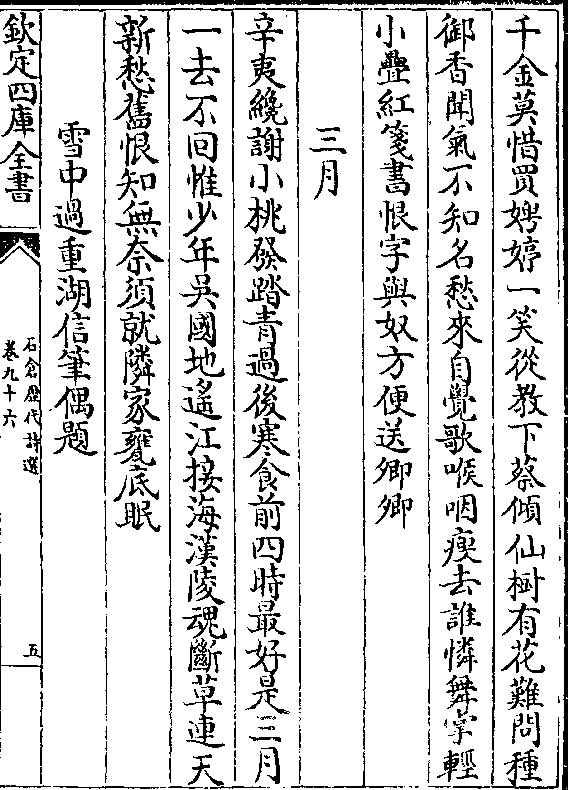 千金莫惜買娉婷一笑從教下蔡傾仙樹有花難問種
御香聞氣不知名愁來自覺歌喉咽瘦去誰憐舞掌輕
小疊紅箋書恨字與奴方便送卿卿
三月
辛夷纔謝小桃發踏青過後寒食前四時最好是三月
一去不回惟少年吳國地遙江接海漢陵魂斷草連天
新愁舊恨知無奈須就隣家甕底眠
雪中過重湖信筆偶題
欽定四庫全書
石倉歷代詩選
卷九十六
五